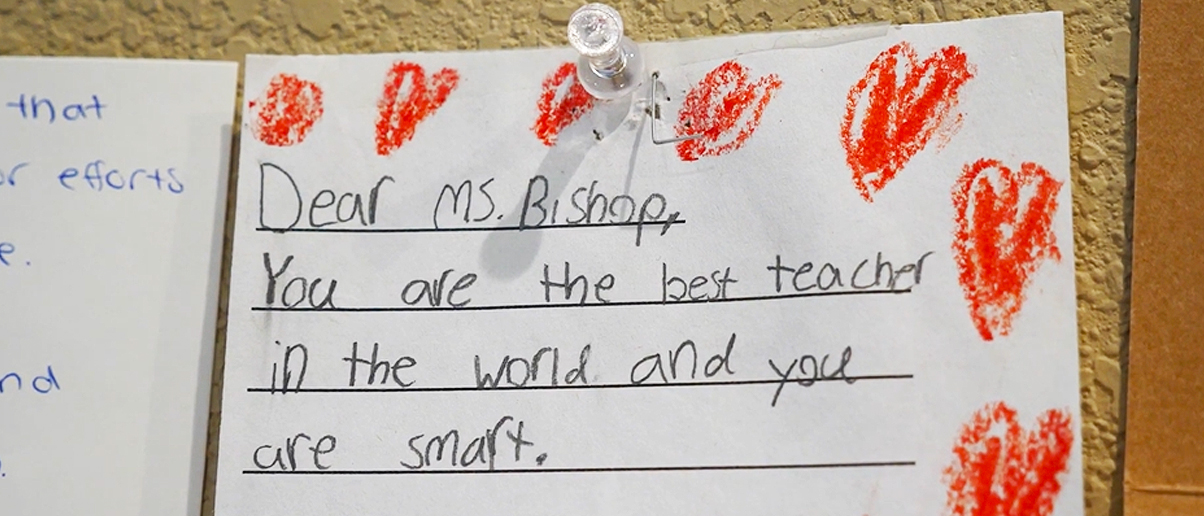 that
efforts
nd
Dear Ms. Bishop,
You are the best teacher
in the world and you
are smart.